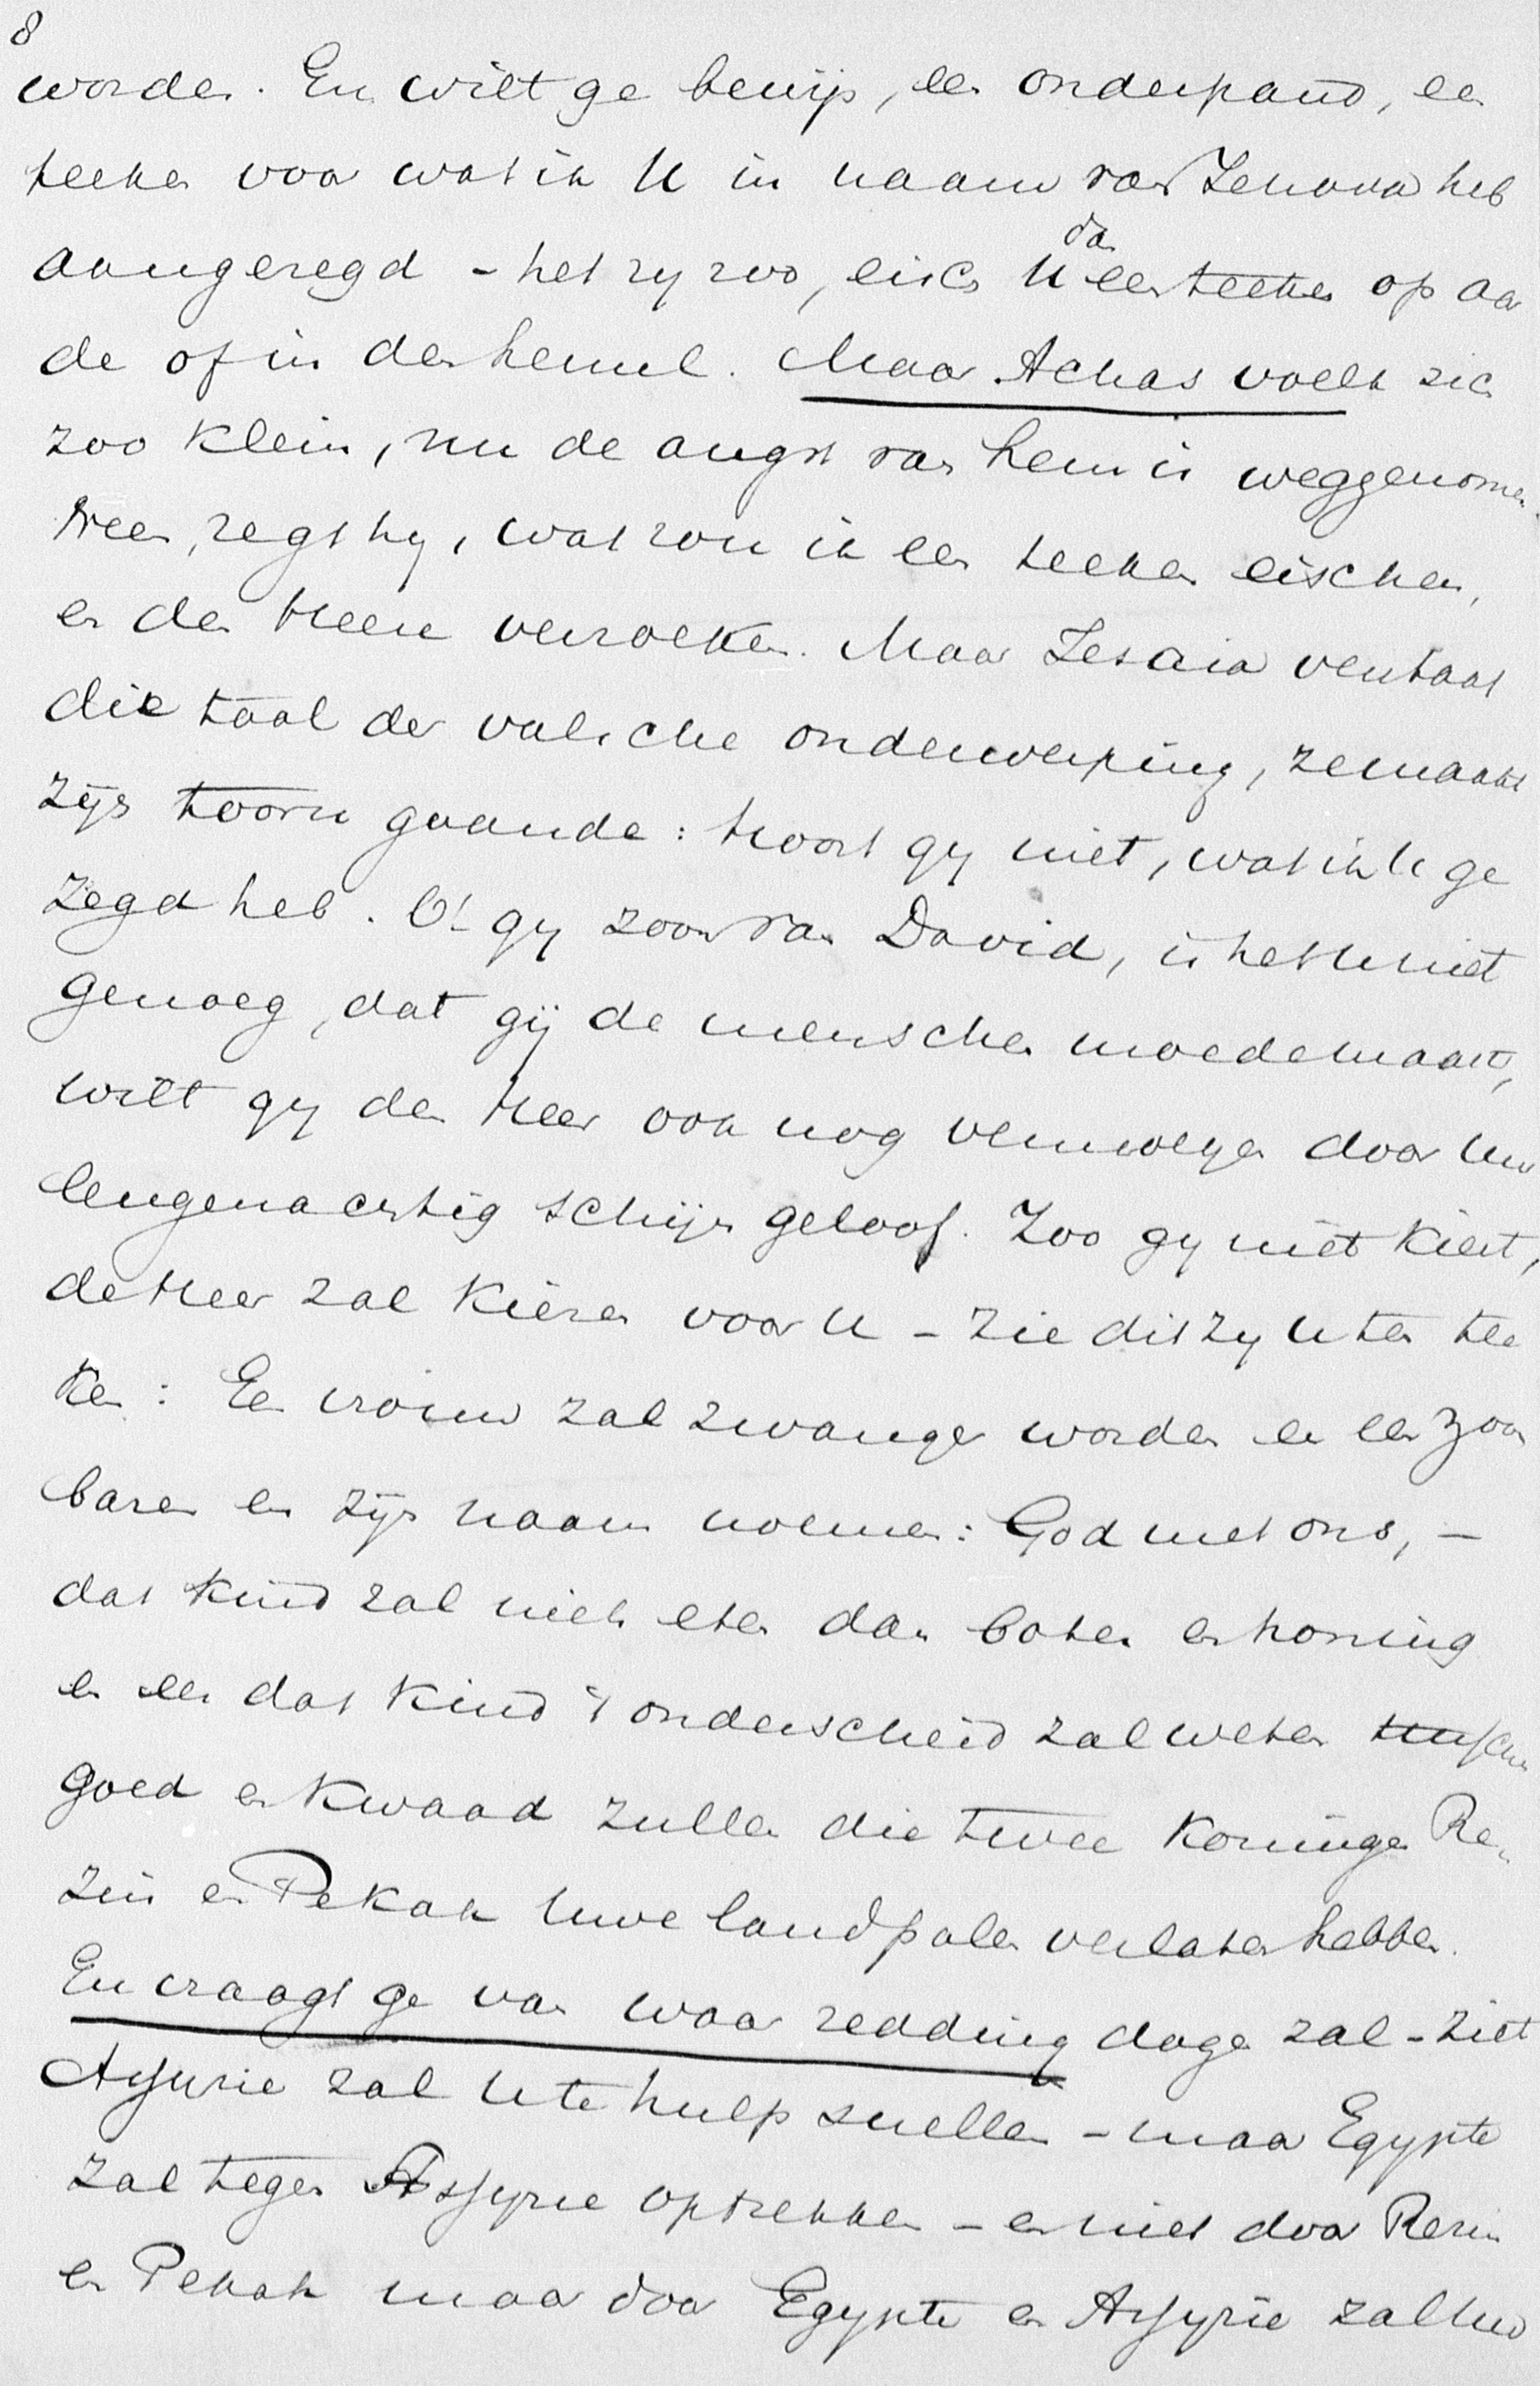 8
worden. En wilt ge bewijs, een onderpand, een
teeken voor wat ik U in naam van Jehova heb
aangezegd - het zy zoo, eisch U dan een teeken op aar
de of in den hemel. Maar Achas voelt zich
zoo klein, nu de angst van hem is weggenomen.
Neen, zegt hy, wat zou ik een teeken eischen,
en den Heere verzoeken. Maar Jesaia verstaat
die taal der valsche onderwerping, ze maakt
zijn toorn gaande: hoort gy niet, wat ik U ge
zegd heb. O! gy zoon van David, is het U niet
genoeg, dat gij de menschen moede maakt,
wilt gy den Heer ook nog vermoeyen door Uw
leugenachtig schijn geloof. Zoo gy niet kiest,
de Heer zal kiezen voor U - zie dit zy U ten tee
ken: Een vrouw zal zwanger worden en een zoon
baren en zijn naam noemen: God met ons, -
dat kind zal niets eten dan boter en honing
en eer dat kind 't onderscheid zal weten tusschen
goed en kwaad zullen die twee koningen Re-
zin en Pekah Uwe landpalen verlaten hebben.
En vraagt ge van waar redding dagen zal - ziet
Assyrie zal U te hulp snellen - maar Egypte
zal tegen Assyrie optrekken - en niet door Rezin
en Pekah maar door Egypte en Assyrie zal Uw